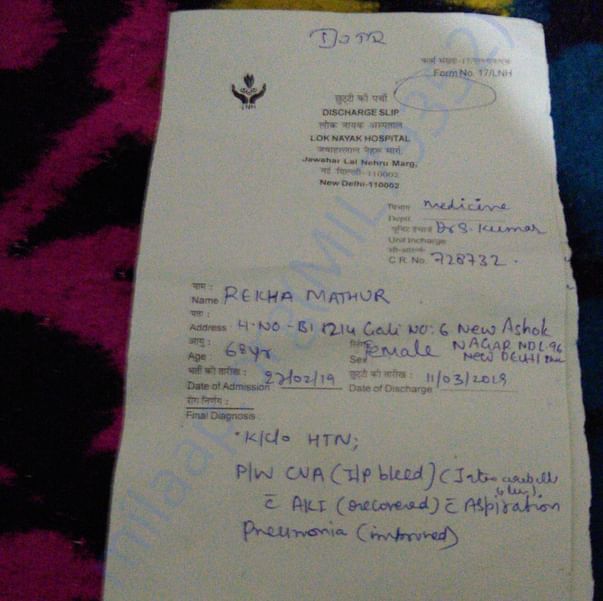 Form No. 17/LNH
LNH
छुट्टी की पर्ची
DISCHARGE SLIP
लोक नायक अस्पताल
LOK NAYAK HOSPITAL
जवाहरलाल नेहरू मार्ग,
Jawahar Lal Nehru Marg,
नई दिल्ली-110002
New Delhi-110002
विभाग
Deptt. medicine
यूनिट इंचार्ज Dr S. Kumar
Unit Incharge
सी.आर.नं.
C.R. No. 728732.
नाम :
Name REKHA MATHUR
पता :
Address H-NO-B1 1214 Gali NO: 6 New Ashok
NAGAR NDL-96
NEW DELHI
आयु :
Age : 68yr
लिंग
Sex female
भर्ती की तारीख : छुट्टी की तारीख :
Date of Admission : 27/02/19 Date of Discharge : 11/03/2019
रोग निर्णय :
Final Diagnosis
K/c/o HTN;
P/W CVA (I/P bleed) (
c̄ AKI (recovered) c̄ Aspiration
Pneumonia (improved)